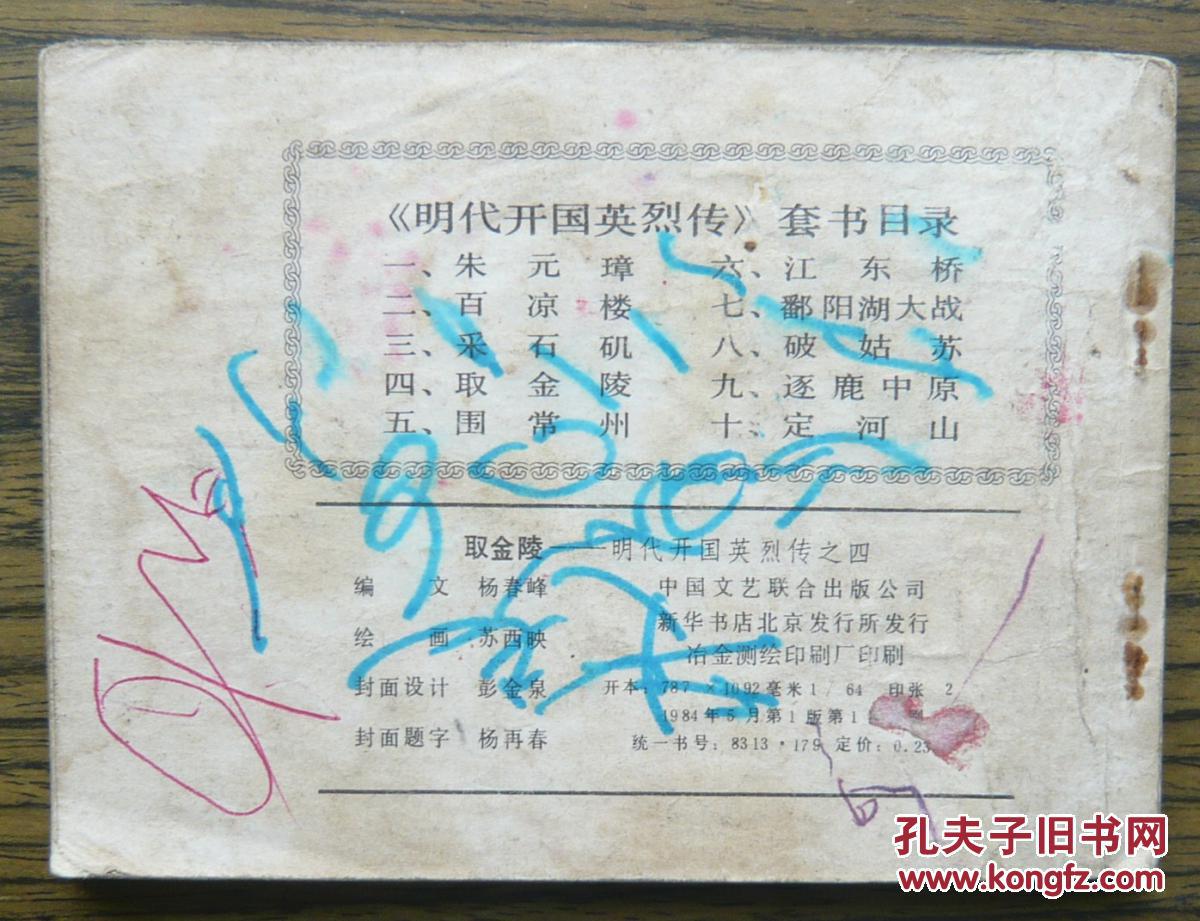 《明代开国英烈传》套书目录
一、朱元璋 六、江东桥
二、百凉楼 七、鄱阳湖大战
三、采石矶 八、破姑苏
四、取金陵 九、逐鹿中原
五、围常州 十、定河山
取金陵——明代开国英烈传之四
编文 杨春峰 中国文艺联合出版公司
新华书店北京发行所发行
绘画 苏西映 冶金测绘印刷厂印刷
封面设计 彭金泉 开本:787×1092毫米1/64 印张2
1984年5月第1版第1
封面题字 杨再春 统一书号:8313·179 定价:0.23
孔夫子旧书网
www.kongfz.com